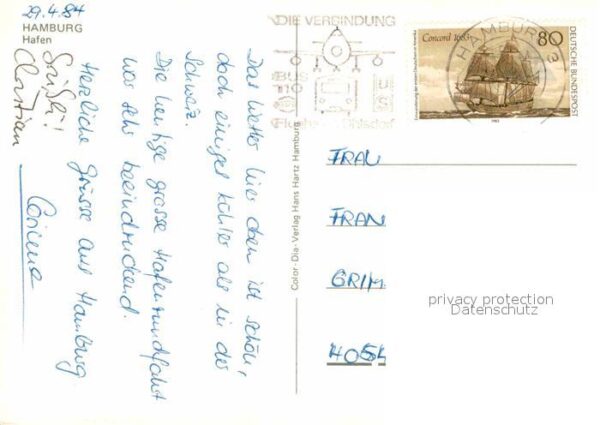 29.4.84
HAMBURG
Hafen
Das Wetter hier oben ist schön,
doch einiges kühler als in der
Schweiz.
Die heutige grosse Hafenrundfahrt
war sehr beeindruckend.
Herzliche Grüsse aus Hamburg
Corinne
Christian
Color-Dia-Verlag Hans Hartz Hamburg
DIE VERBINDUNG
BUS
110
U
S
Flughafen Ohlsdorf
HAMBURG
Concord 1683
80
DEUTSCHE BUNDESPOST
1983
FRAU
FRAN
GRIM
4054
privacy protection
Datenschutz